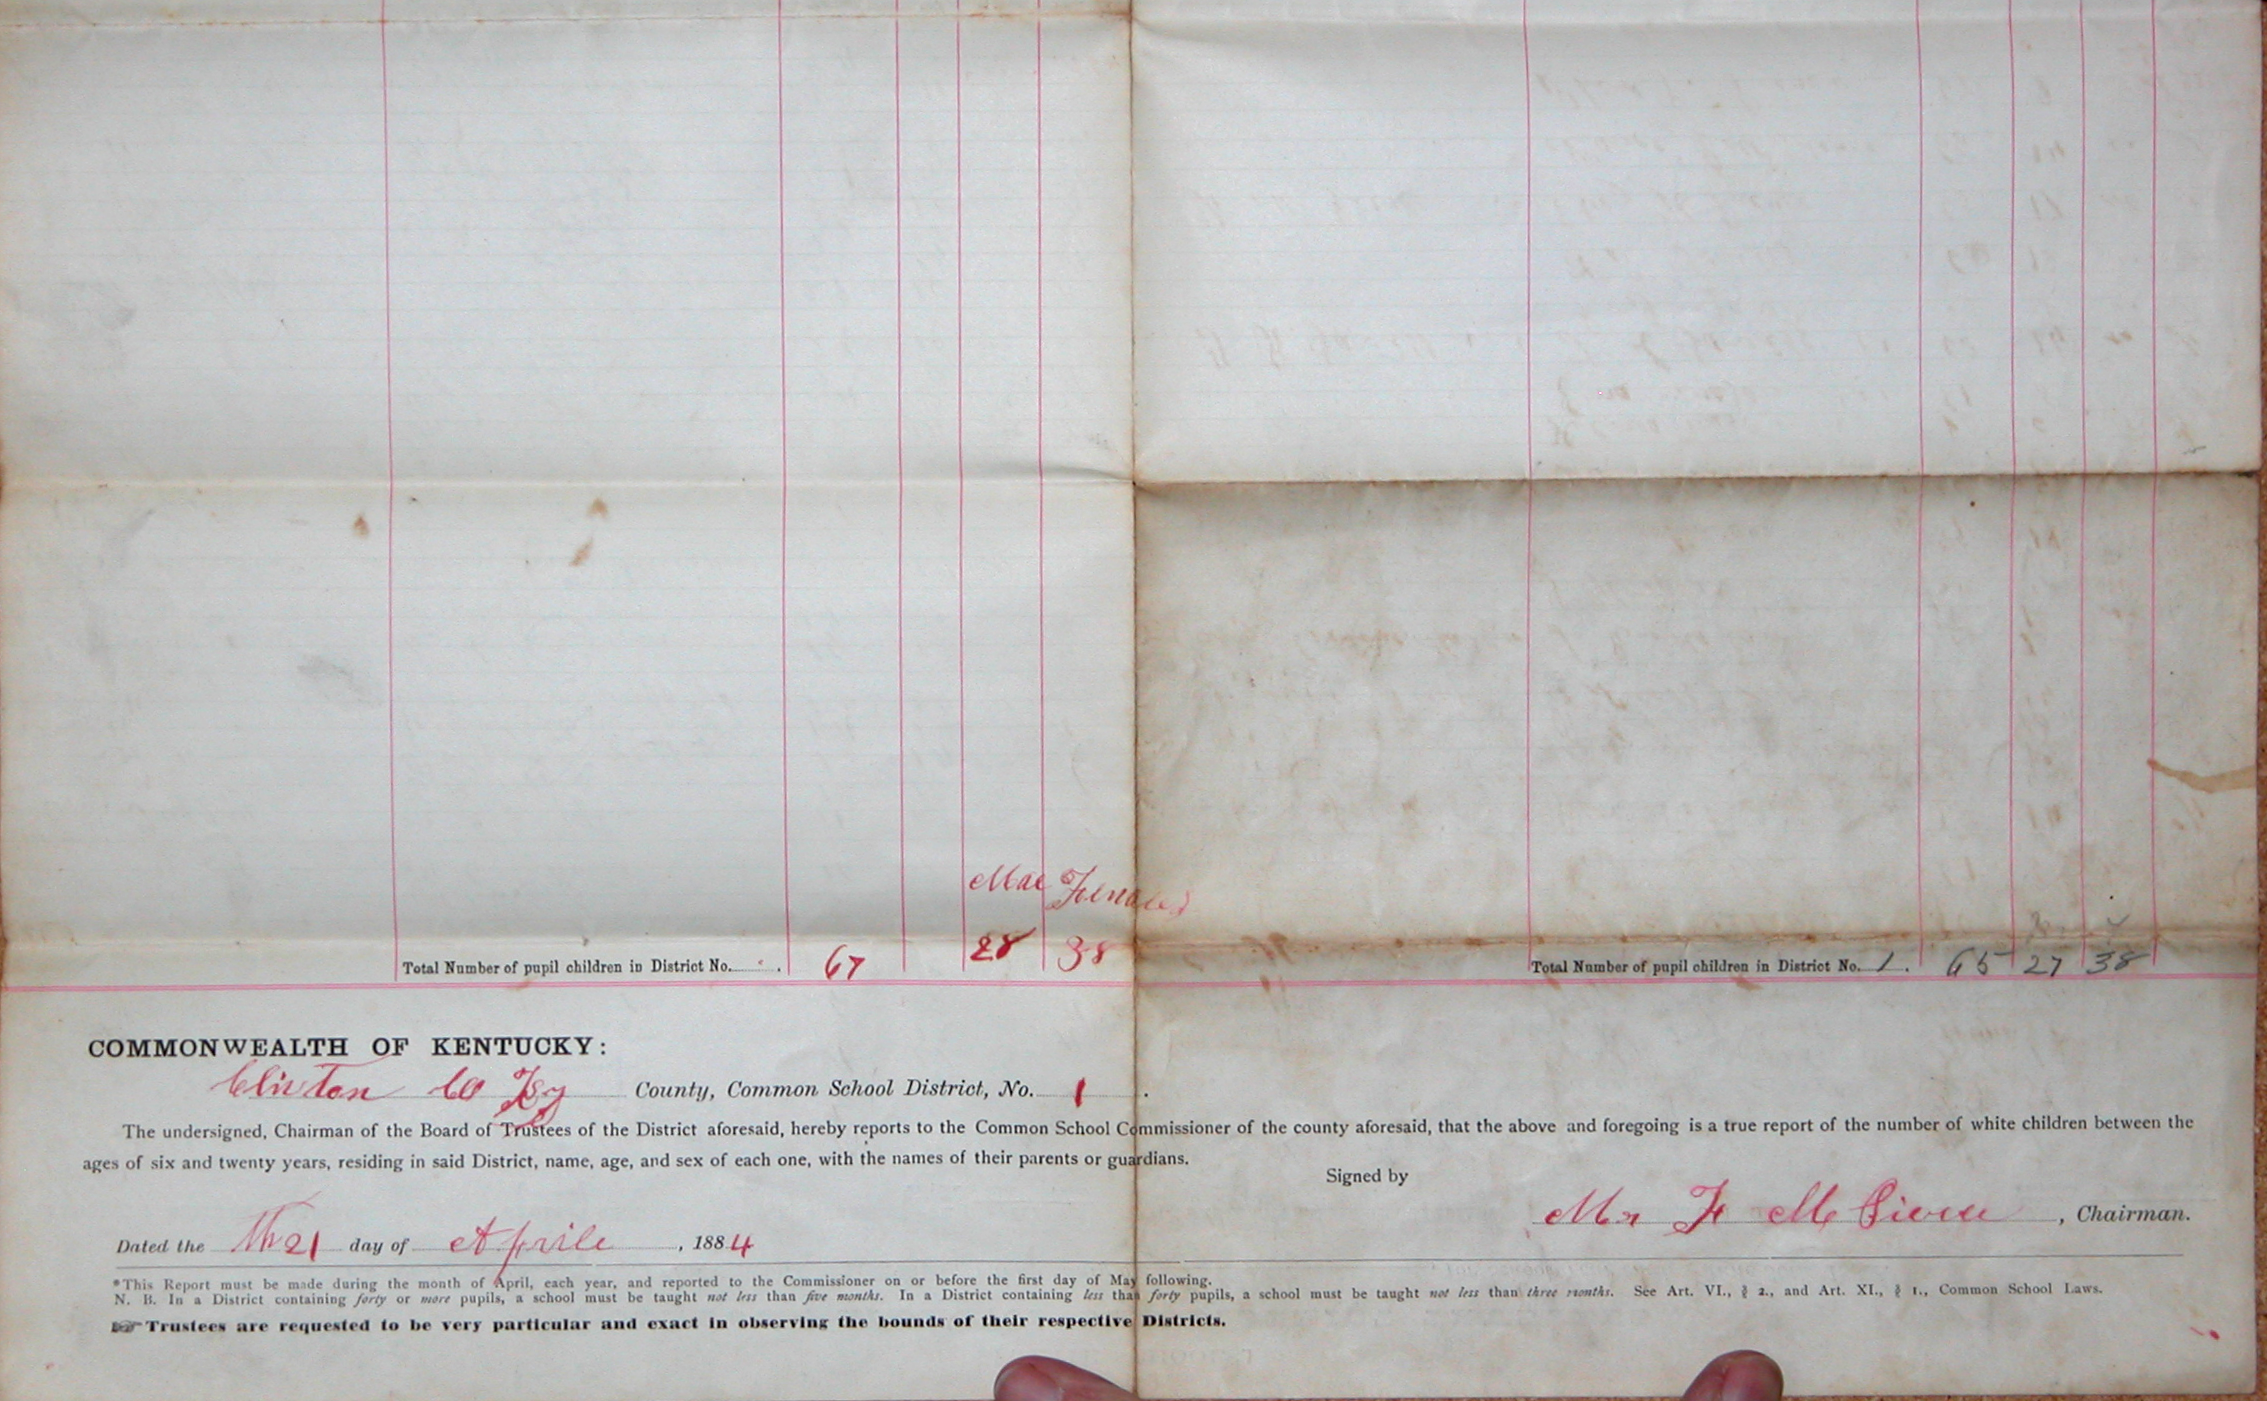 Male Females
Total Number of pupil children in District No. . 67 28 38
Total Number of pupil children in District No. 1. 65 27 38
COMMONWEALTH OF KENTUCKY:
Clinton Co Ky County, Common School District, No. 1.
The undersigned, Chairman of the Board of Trustees of the District aforesaid, hereby reports to the Common School Commissioner of the county aforesaid, that the above and foregoing is a true report of the number of white children between the
ages of six and twenty years, residing in said District, name, age, and sex of each one, with the names of their parents or guardians.
Signed by
F M , Chairman.
Dated the 21 day of Aprile, 1884
*This Report must be made during the month of April, each year, and reported to the Commissioner on or before the first day of May following.
N. B. In a District containing forty or more pupils, a school must be taught not less than five months. In a District containing less than forty pupils, a school must be taught not less than three months. See Art. VI., § 2., and Art. XI., § 1., Common School Laws.
☞Trustees are requested to be very particular and exact in observing the bounds of their respective Districts.